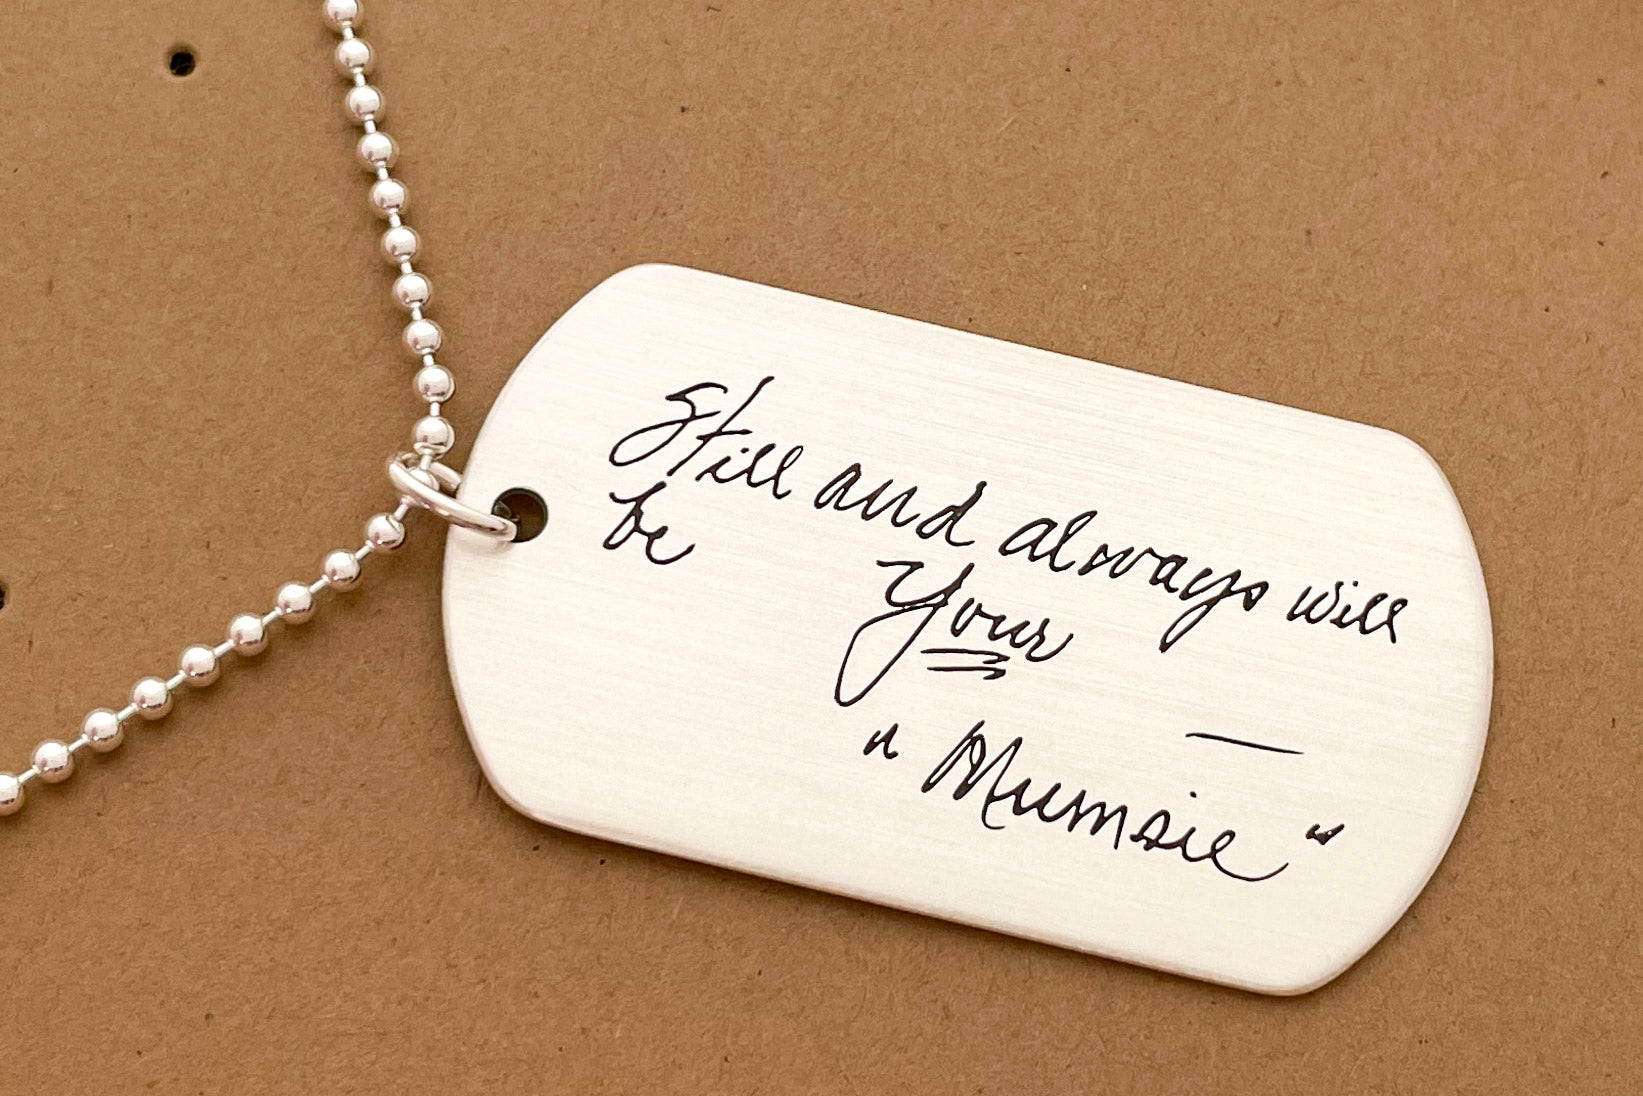 Still and always will
be
Your
—
"Mumsie"